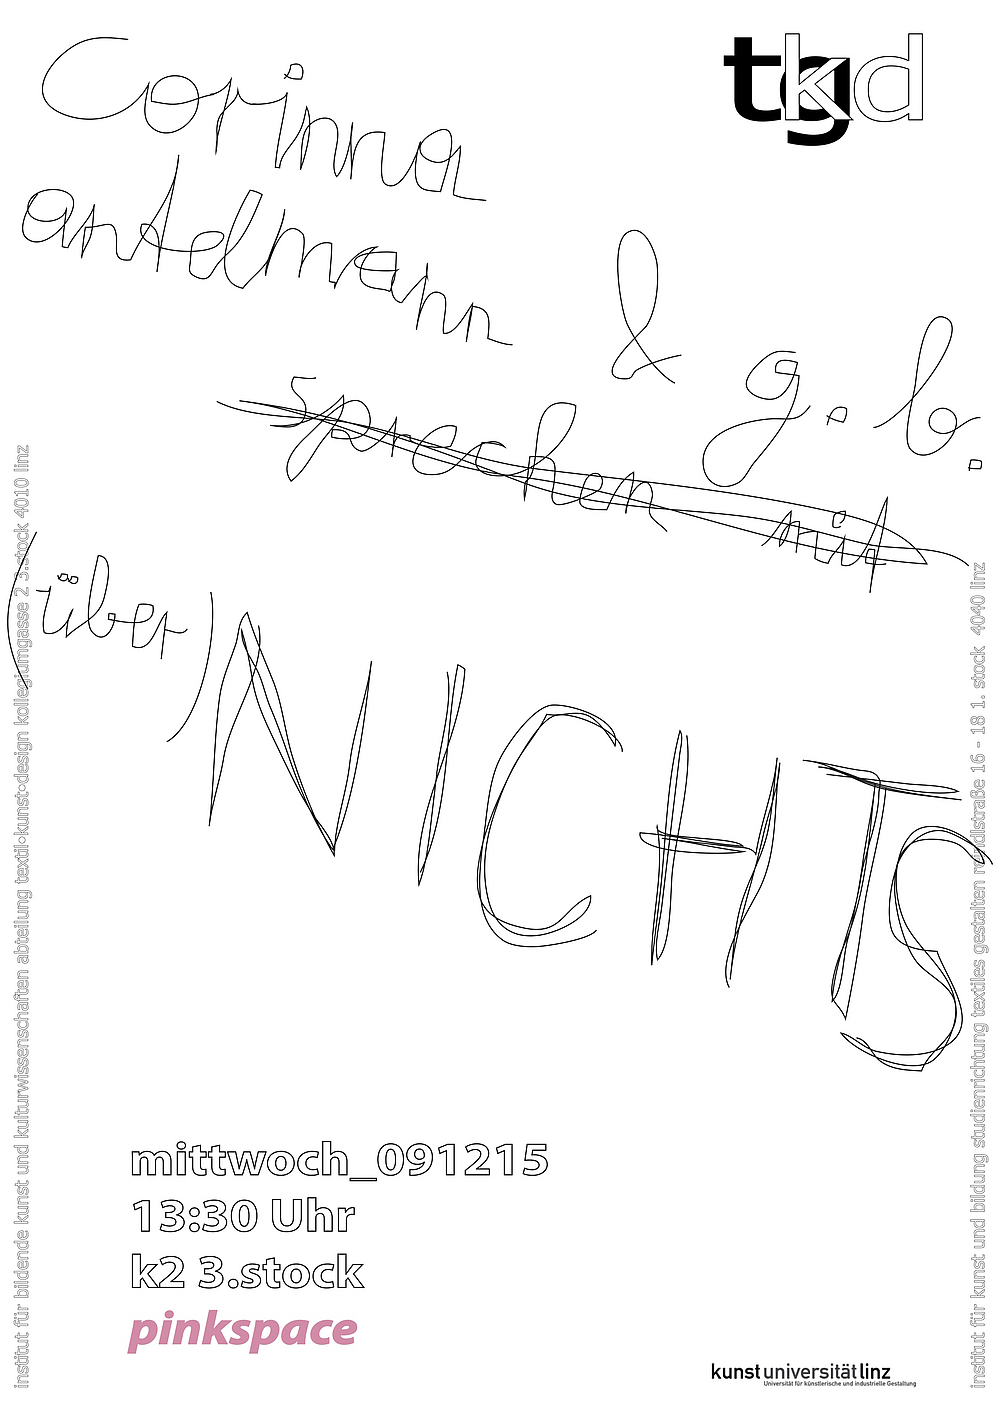 tgkd
Corinna
antelmann
& g. b.
sprechen mit
(über) NICHTS
mittwoch_091215
13:30 Uhr
k2 3.stock
pinkspace
kunstuniversitätlinz
Universität für künstlerische und industrielle Gestaltung
institut für bildende kunst und kulturwissenschaften abteilung textil·kunst·design kollegiumgasse 2 3.stock 4010 linz
institut für kunst und bildung studienrichtung textiles gestalten reindlstraße 16 - 18 1. stock 4040 linz